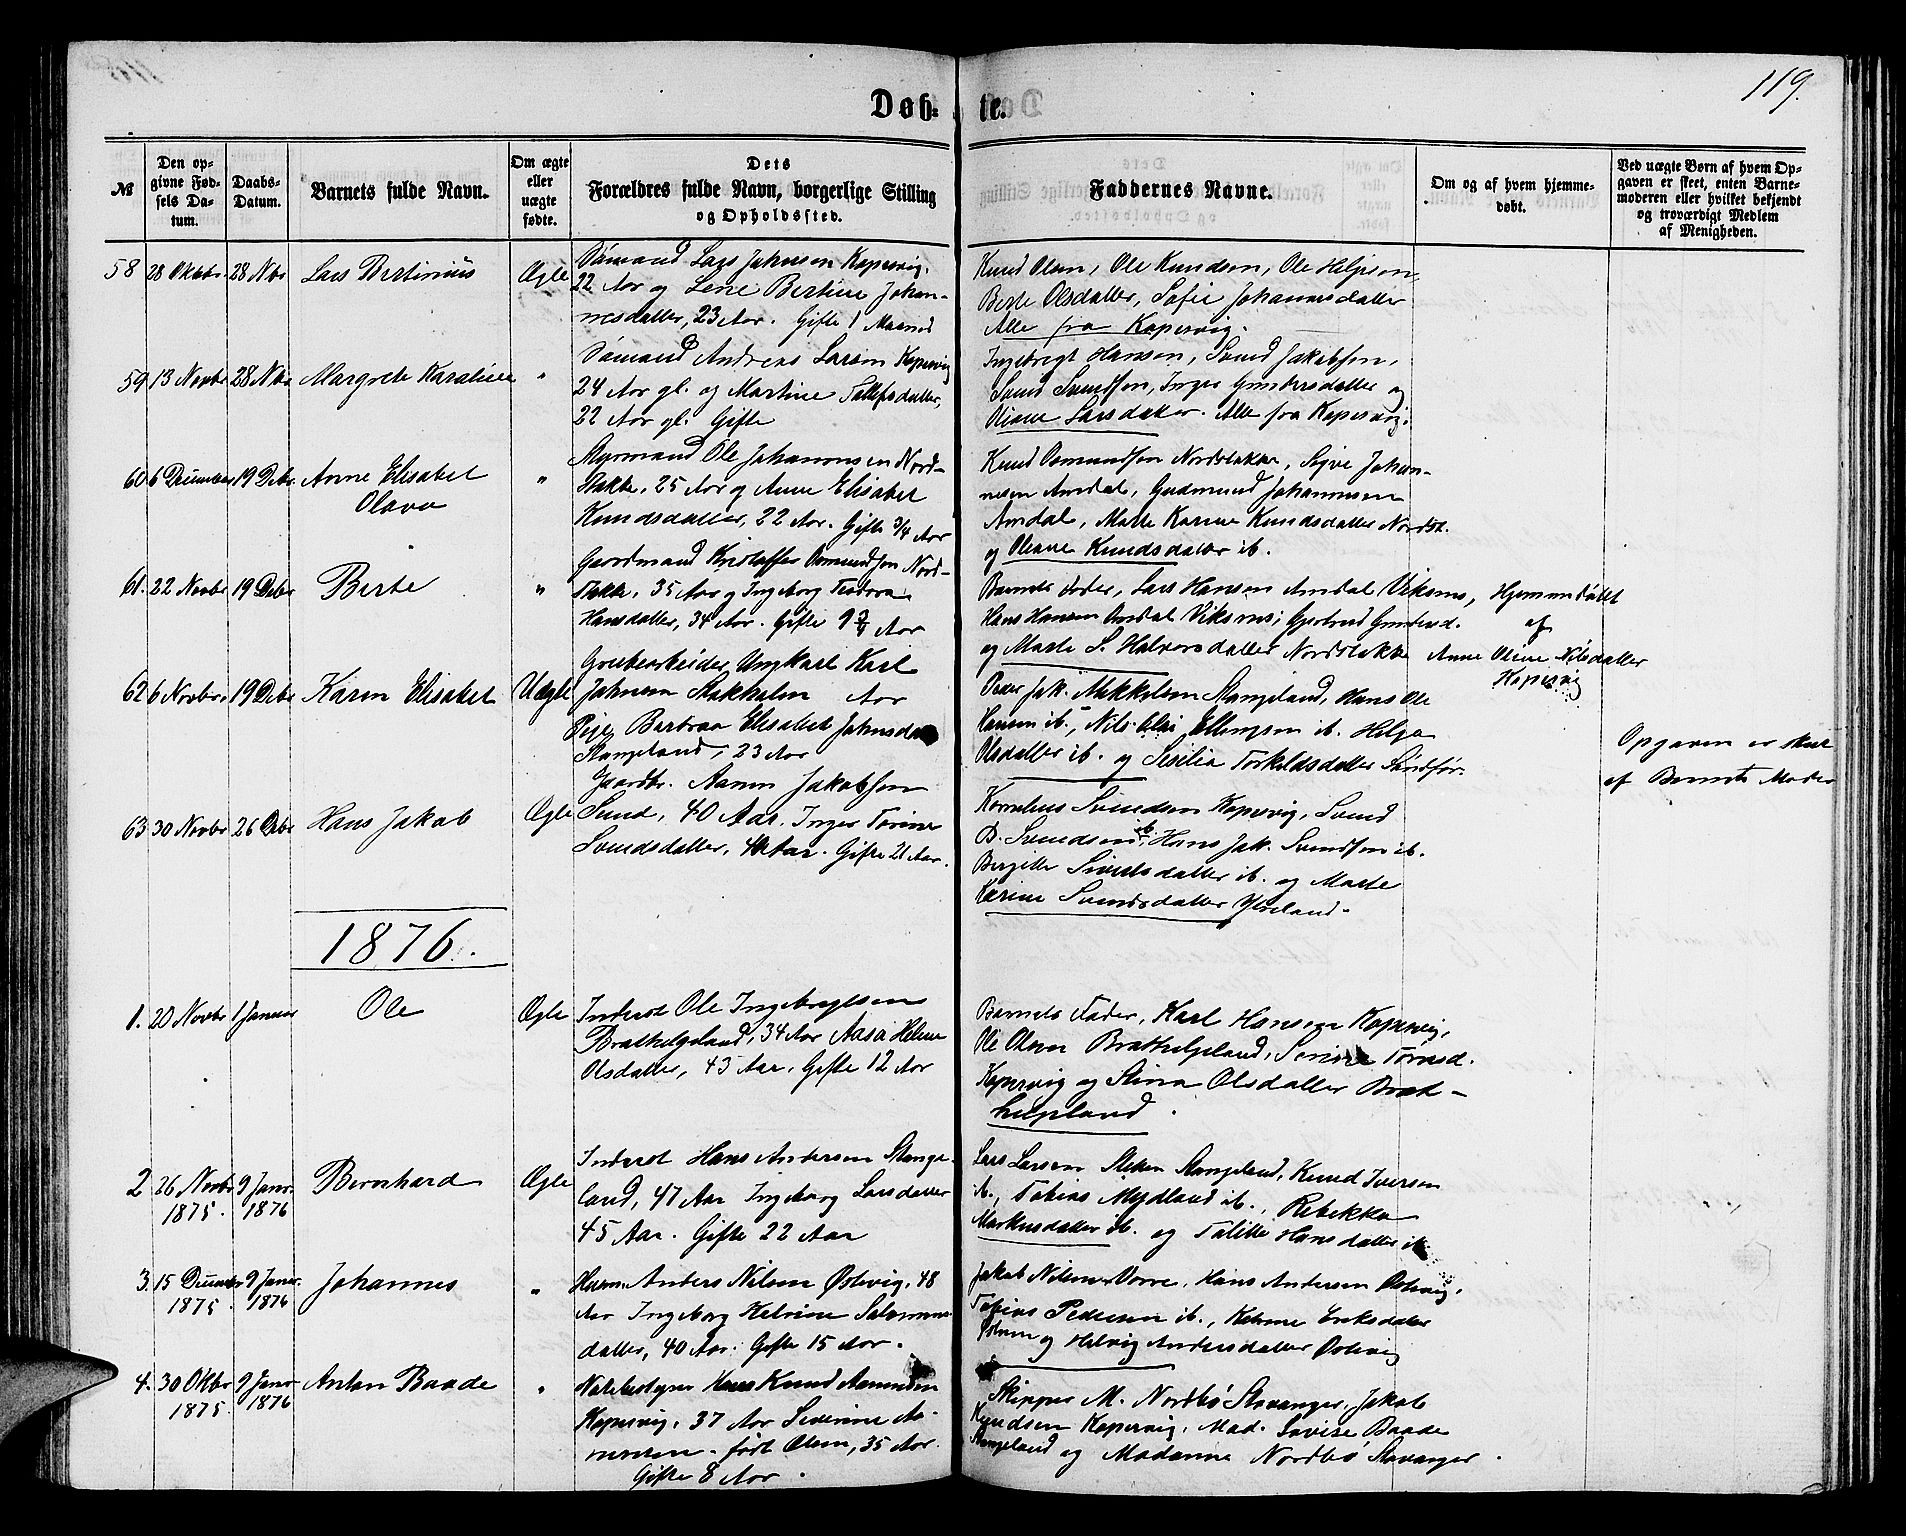 119.
Døb- te.
№
Den op-
givne Fød-
sels Da-
tum.
Daabs-
Datum.
Barnets fulde Navn.
Om ægte
eller
uægte
fødte.
Dets
Forældres fulde Navn, borgerlige Stilling
og Opholdssted.
Faddernes Navne.
Om og af hvem hjemme-
døbt.
Ved uægte Børn af hvem Op-
gaven er skeet, enten Barne-
moderen eller hvilket bekjendt
og troværdigt Medlem
af Menigheden.
58 28 Oktobr. 28 Nbr Lars Bertinius Ægte
Sømand Lars Johnsen Kopervig,
22 Aar og Lene Bertine Johan-
nesdatter, 23 Aar. Gifte 1 Maaned
Knud Olsen, Ole Knudsen, Ole Helgesen,
Berte Olsdatter, Sofie Johannesdatter
Alle fra Kopervig.
59 13 Novbr 28 Nbr Margrete Karoline "
Sømand Andreas Larsen Kopervig
24 Aar gl. og Martine Tollefsdatter,
22 Aar gl. Gifte
Ingebrigt Hansen, Svend Jakobsen,
Svend Svendsen, Inger Gundersdatter og
Oliane Larsdatter. Alle fra Kopervig.
60 6 December 19 Debr Anne Elisabet
Olava "
Styrmand Ole Johannesen Nord-
stokke, 25 Aar og Anne Elisabet
Knudsdatter, 22 Aar. Gifte 3/4 Aar
Knud Osmundsen Nordstokke, Johan-
nesen Amdal, Gudmund Johannesen
Amdal, Marte Karine Knudsdatter Nordst.
og Oliane Knudsdatter ib.
61. 22 Novbr 19 Debr Berte "
Gaardmand Kristoffer Osmundsen Nord-
stokke, 35 Aar og Ingeborg Teodora
Hansdatter, 34 Aar. Gifte 9 Aar
Barnets Fader, Lars Hansen Amdal Viksnes,
Hans Hansen Amdal Viksnes, Gjertrud Gundersd.
og Marte S. Halvorsdatter Nordstokke
Hjemmedøbt
af
Anne Oline Nilsdatter
Kopervig
62 6 Novbr. 19 Debr Karen Elisabet Uægte
Grubearbeider, Ungkarl Karl
Johnsen Stokholm Aar
Pige Barbraa Elisabet Johnsdatter
Stangeland, 23 Aar
Peder Jak. Mikkelsen Stangeland, Hans Ole
Hansen ib., Nils Ellingsen ib. Helga
Olsdatter ib. og Sisilia Torkildsdatter
Opgaven er skeet
af Barnets Moder
63 30 Novbr 26 Debr Hans Jakob Ægte
Gaardbr. Aamund Jakobsen
Sund, 40 Aar. Inger Torine
Svendsdatter, Aar. Gifte 21 Aar.
Kornelius Svendsen Kopervig, Svend
B. Svendsen ib, Hans Jak. Svendsen ib.
Bergitte Sivertsdatter ib. og Marte
Karine Svendsdatter
1876.
1. 20 Novbr 1 Januar Ole Ægte
Inderst Ole Ingebrigtsen
Brathelgeland, 34 Aar Aasa Helene
Olsdatter, 43 Aar. Gifte 12 Aar
Barnets Fader, Karl Hansen Kopervig,
Ole Olsen Brathelgeland, Serine
Kopervig og Stina Olsdatter Brat-
helgeland.
2 26 Novbr 9 Janr. Bernhard Ægte
1875. 1876
Inderst Hans Andersen Stange-
land, 47 Aar Ingeborg Larsdatter
45 Aar. Gifte 22 Aar
Lars Larsen Stangeland, Knud Iversen
ib., Tobias Mydland ib., Rebekka
Markusdatter ib. og Talette Hansdatter ib.
3. 15 December 9 Janr. Johannes "
1875. 1876
Husm. Anders Nilsen Østevig, 48
Aar Ingeborg Helvine Salomons-
datter, 40 Aar. Gifte 15 Aar.
Jakob Nilsen Vorre, Hans Andersen Østevig,
Tobias Pedersen ib., Eriksdatter
og Helvig Andersdatter Østevig
4. 30 Oktbr 9 Janr Anton Baade "
1875. 1876
Hans Knud Aamundsen
Kopervig, 37 Aar Severine Aa-
mundsen født Olsen, 35 Aar.
Gifte 8 Aar.
Skipper M. Nordbø Stavanger, Jakob
Knudsen Kopervig, Mad. Lovise Baade
Stangeland og Madamme Nordbø Stavanger.